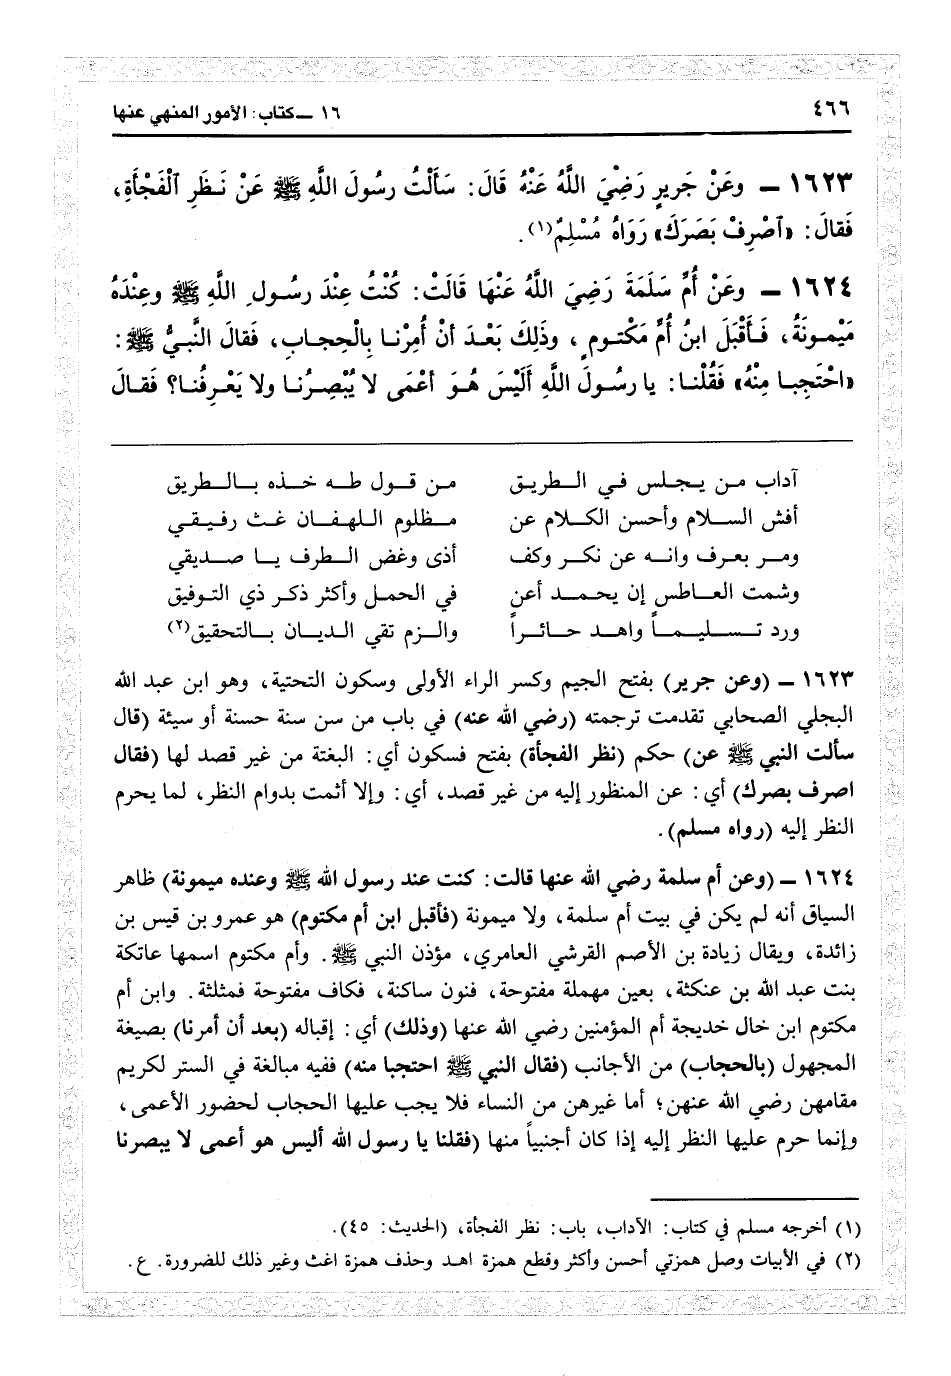 ٤٦٦
١٦ ــ كتاب: الأمور المنهي عنها
١٦٢٣ ــ وعَنْ جَريرٍ رَضِيَ اللَّهُ عَنْهُ قَالَ: سَأَلْتُ رسُولَ اللَّهِ ﷺ عَنْ نَـظَرِ ٱلْفَجْأَةِ،
فَقالَ: «ٱصْرِفْ بَصَرَكَ» رَوَاهُ مُسْلِمٌ(١).
١٦٢٤ ــ وعَنْ أُمِّ سَلَمَةَ رَضِيَ اللَّهُ عَنْهَا قَالَتْ: كُنْتُ عِنْدَ رسُولِ اللَّهِ ﷺ وعِنْدَهُ
مَيْمونَةُ، فَأَقْبَلَ ابنُ أُمِّ مَكْتومٍ، وذَلِكَ بَعْدَ أنْ أُمِرْنا بِالْحِجابِ، فَقالَ النَّبيُّ ﷺ:
«احْتَجِبا مِنْهُ» فَقُلْنا: يا رسُولَ اللَّهِ أَلَيْسَ هُوَ أعْمَى لا يُبْصِرُنا ولا يَعْرِفُنا؟ فَقالَ
آداب من يجلس في الطريق من قول طه خذه بالطريق
أفش السلام وأحسن الكلام عن مظلوم اللهفان غث رفيقي
ومر بعرف وانه عن نكر وكف أذى وغض الطرف يا صديقي
وشمت العاطس إن يحمد أعن في الحمل وأكثر ذكر ذي التوفيق
ورد تسليماً واهد حائراً والزم تقي الديان بالتحقيق(٢)
١٦٢٣ ــ (وعن جرير) بفتح الجيم وكسر الراء الأولى وسكون التحتية، وهو ابن عبد الله
البجلي الصحابي تقدمت ترجمته (رضي الله عنه) في باب من سن سنة حسنة أو سيئة (قال
سألت النبي ﷺ عن) حكم (نظر الفجأة) بفتح فسكون أي: البغتة من غير قصد لها (فقال
اصرف بصرك) أي: عن المنظور إليه من غير قصد، أي: وإلا أثمت بدوام النظر، لما يحرم
النظر إليه (رواه مسلم).
١٦٢٤ ــ (وعن أم سلمة رضي الله عنها قالت: كنت عند رسول الله ﷺ وعنده ميمونة) ظاهر
السياق أنه لم يكن في بيت أم سلمة، ولا ميمونة (فأقبل ابن أم مكتوم) هو عمرو بن قيس بن
زائدة، ويقال زيادة بن الأصم القرشي العامري، مؤذن النبي ﷺ. وأم مكتوم اسمها عاتكة
بنت عبد الله بن عنكثة، بعين مهملة مفتوحة، فنون ساكنة، فكاف مفتوحة فمثلثة. وابن أم
مكتوم ابن خال خديجة أم المؤمنين رضي الله عنها (وذلك) أي: إقباله (بعد أن أمرنا) بصيغة
المجهول (بالحجاب) من الأجانب (فقال النبي ﷺ احتجبا منه) ففيه مبالغة في الستر لكريم
مقامهن رضي الله عنهن؛ أما غيرهن من النساء فلا يجب عليها الحجاب لحضور الأعمى،
وإنما حرم عليها النظر إليه إذا كان أجنبياً منها (فقلنا يا رسول الله أليس هو أعمى لا يبصرنا
(١) أخرجه مسلم في كتاب: الآداب، باب: نظر الفجأة، (الحديث: ٤٥).
(٢) في الأبيات وصل همزتي أحسن وأكثر وقطع همزة اهد وحذف همزة اغث وغير ذلك للضرورة. ع.